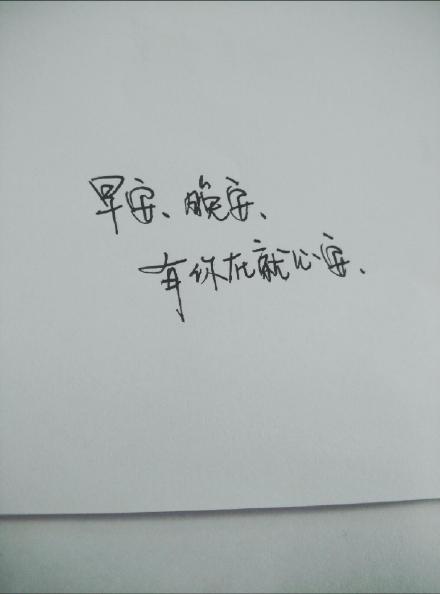 早安、晚安、
有你在就心安、